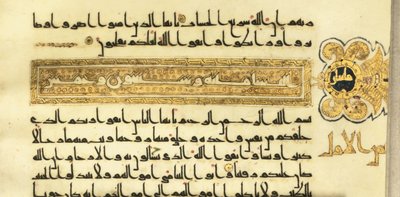 ربهم ان الله سريع الحساب يايها الذين امنوا اصبروا وصا
بروا ورابطوا واتقوا الله لعلكم تفلحون
بسم الله الرحمن الرحيم يايها الناس اتقوا ربكم الذي
خلقكم من نفس واحدة وخلق منها زوجها وبث منهما رجالا
كثيرا ونساء واتقوا الله الذي تساءلون به والارحام ان الله
كان عليكم رقيبا واتوا اليتامى اموالهم ولا تتبدلوا الخبيث
بالطيب ولا تاكلوا اموالهم الى اموالكم انه كان حوبا
الاول